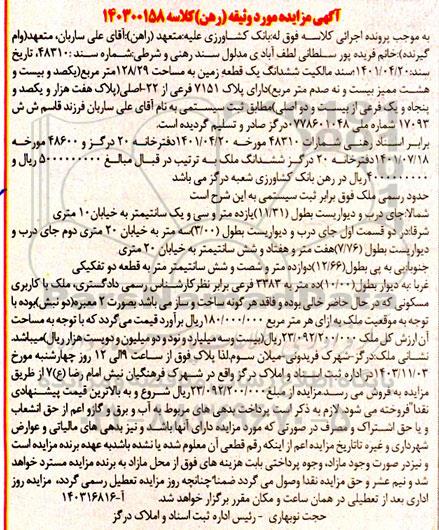 آگهی مزایده مورد وثیقه (رهن) کلاسه ۱۴۰۳۰۰۱۵۸
به موجب پرونده اجرائی کلاسه فوق له:بانک کشاورزی علیه:متعهد (راهن):آقای علی ساربان، متعهد(وام
گیرنده):خانم فریده پور سلطانی لطف آبادی مدلول سند رهنی و شرطی:شماره سند :۴۸۳۱۰، تاریخ
سند:۱۴۰۱/۰۴/۲۰سند مالکیت ششدانگ یک قطعه زمین به مساحت ۱۲۸/۲۹متر مربع(یکصد و بیست و
هشت ممیز بیست و نه صدم متر مربع)دارای پلاک ۷۱۵۱ فرعی از ۲۲-اصلی(پلاک هفت هزار و یکصد و
پنجاه و یک فرعی از بیست و دو اصلی)مطابق ثبت سیستمی به نام آقای علی ساربان فرزند قاسم ش ش
۱۷۰۹۳ شماره ملی ۰۷۷۸۶۰۱۰۴۸درگز صادر و تسلیم گردیده است.
برابر اسناد رهنی شمارات ۴۸۳۱۰ مورخه ۱۴۰۱/۰۴/۲۰دفترخانه ۲۰ درگز و ۴۸۶۰۰ مورخه
۱۴۰۱/۰۷/۱۸دفترخانه ۲۰ درگز ششدانگ ملک به ترتیب در قبال مبالغ ۵۰۰۰۰۰۰۰۰۰ ریال و
۴۰۰۰۰۰۰۰۰۰ریال در رهن بانک کشاورزی شعبه درگز می باشد
حدود رسمی ملک فوق برابر ثبت سیستمی به این شرح است
شمالا:جای درب و دیواریست بطول (۱۱/۳۱)یازده متر و سی و یک سانتیمتر به خیابان۱۰ متری
شرقا:در دو قسمت اول جای درب و دیواریست بطول (۳/۰۰)سه متر به خیابان ۲۰ متری دوم جای درب و
دیواریست بطول (۷/۷۶)هفت متر و هفتاد و شش سانتیمتر به خیابان ۲۰ متری
جنوبا:پی به پی بطول(۱۲/۶۶)دوازده متر و شصت و شش سانتیمتر متر به قطعه دو تفکیکی
غربا:به دیوار بطول(۱۰/۰۰)ده متر به ۳۳۸۳ فرعی برابر نظر کارشناس رسمی دادگستری، ملک با کاربری
مسکونی که در حال حاضر خالی بوده و فاقد هر گونه ساخت و ساز می باشد بصورت ۲ معبره(دو نبش)بوده با
توجه به موقعیت ملک به ازای هر متر مربع ۱۸۰/۰۰۰/۰۰۰ریال برآورد قیمت می‌گردد که با توجه به مساحت
آن ارزش کل ملک ۲۳/۰۹۲/۲۰۰/۰۰۰ریال(بیست وسه میلیارد و نود و دو میلیون و دویست هزار ریال)میباشد.
نشانی ملک:درگز-شهرک فریدونی-میلان سوم.لذا پلاک فوق از ساعت ۹الی ۱۲ روز چهارشنبه مورخ
۱۴۰۳/۱۱/۰۳در اداره ثبت اسناد و املاک درگز واقع در شهرک فرهنگیان نبش امام رضا (ع)۷ از طریق
مزایده به فروش می رسد.مزایده از مبلغ۲۳/۰۹۲/۲۰۰/۰۰۰ریال شروع و به بالاترین قیمت پیشنهادی
نقدا"فروخته می شود. لازم به ذکر است پرداخت بدهی های مربوط به آب و برق و گاز و اعم از حق انشعاب
و یا حق اشتراک و مصرف در صورتی که مورد مزایده دارای آنها باشد و نیز بدهی های مالیاتی و عوارض
شهرداری و غیره تاتاریخ مزایده اعم از اینکه رقم قطعی آن معلوم شده یا نشده باشد به عهده برنده مزایده است
و نیز در صورت وجود مازاد، وجوه پرداختی بابت هزینه های فوق از محل مازاد به برنده مزایده مسترد خواهد
شد و نیم عشر و حق مزایده نقدا وصول می گردد ضمنا"چنانچه روز مزایده تعطیل رسمی گردد، مزایده روز
اداری بعد از تعطیلی در همان ساعت و مکان مقرر برگزار خواهد شد. آ-۱۴۰۳۱۶۸۱۶
حجت نوبهاری - رئیس اداره ثبت اسناد و املاک درگز